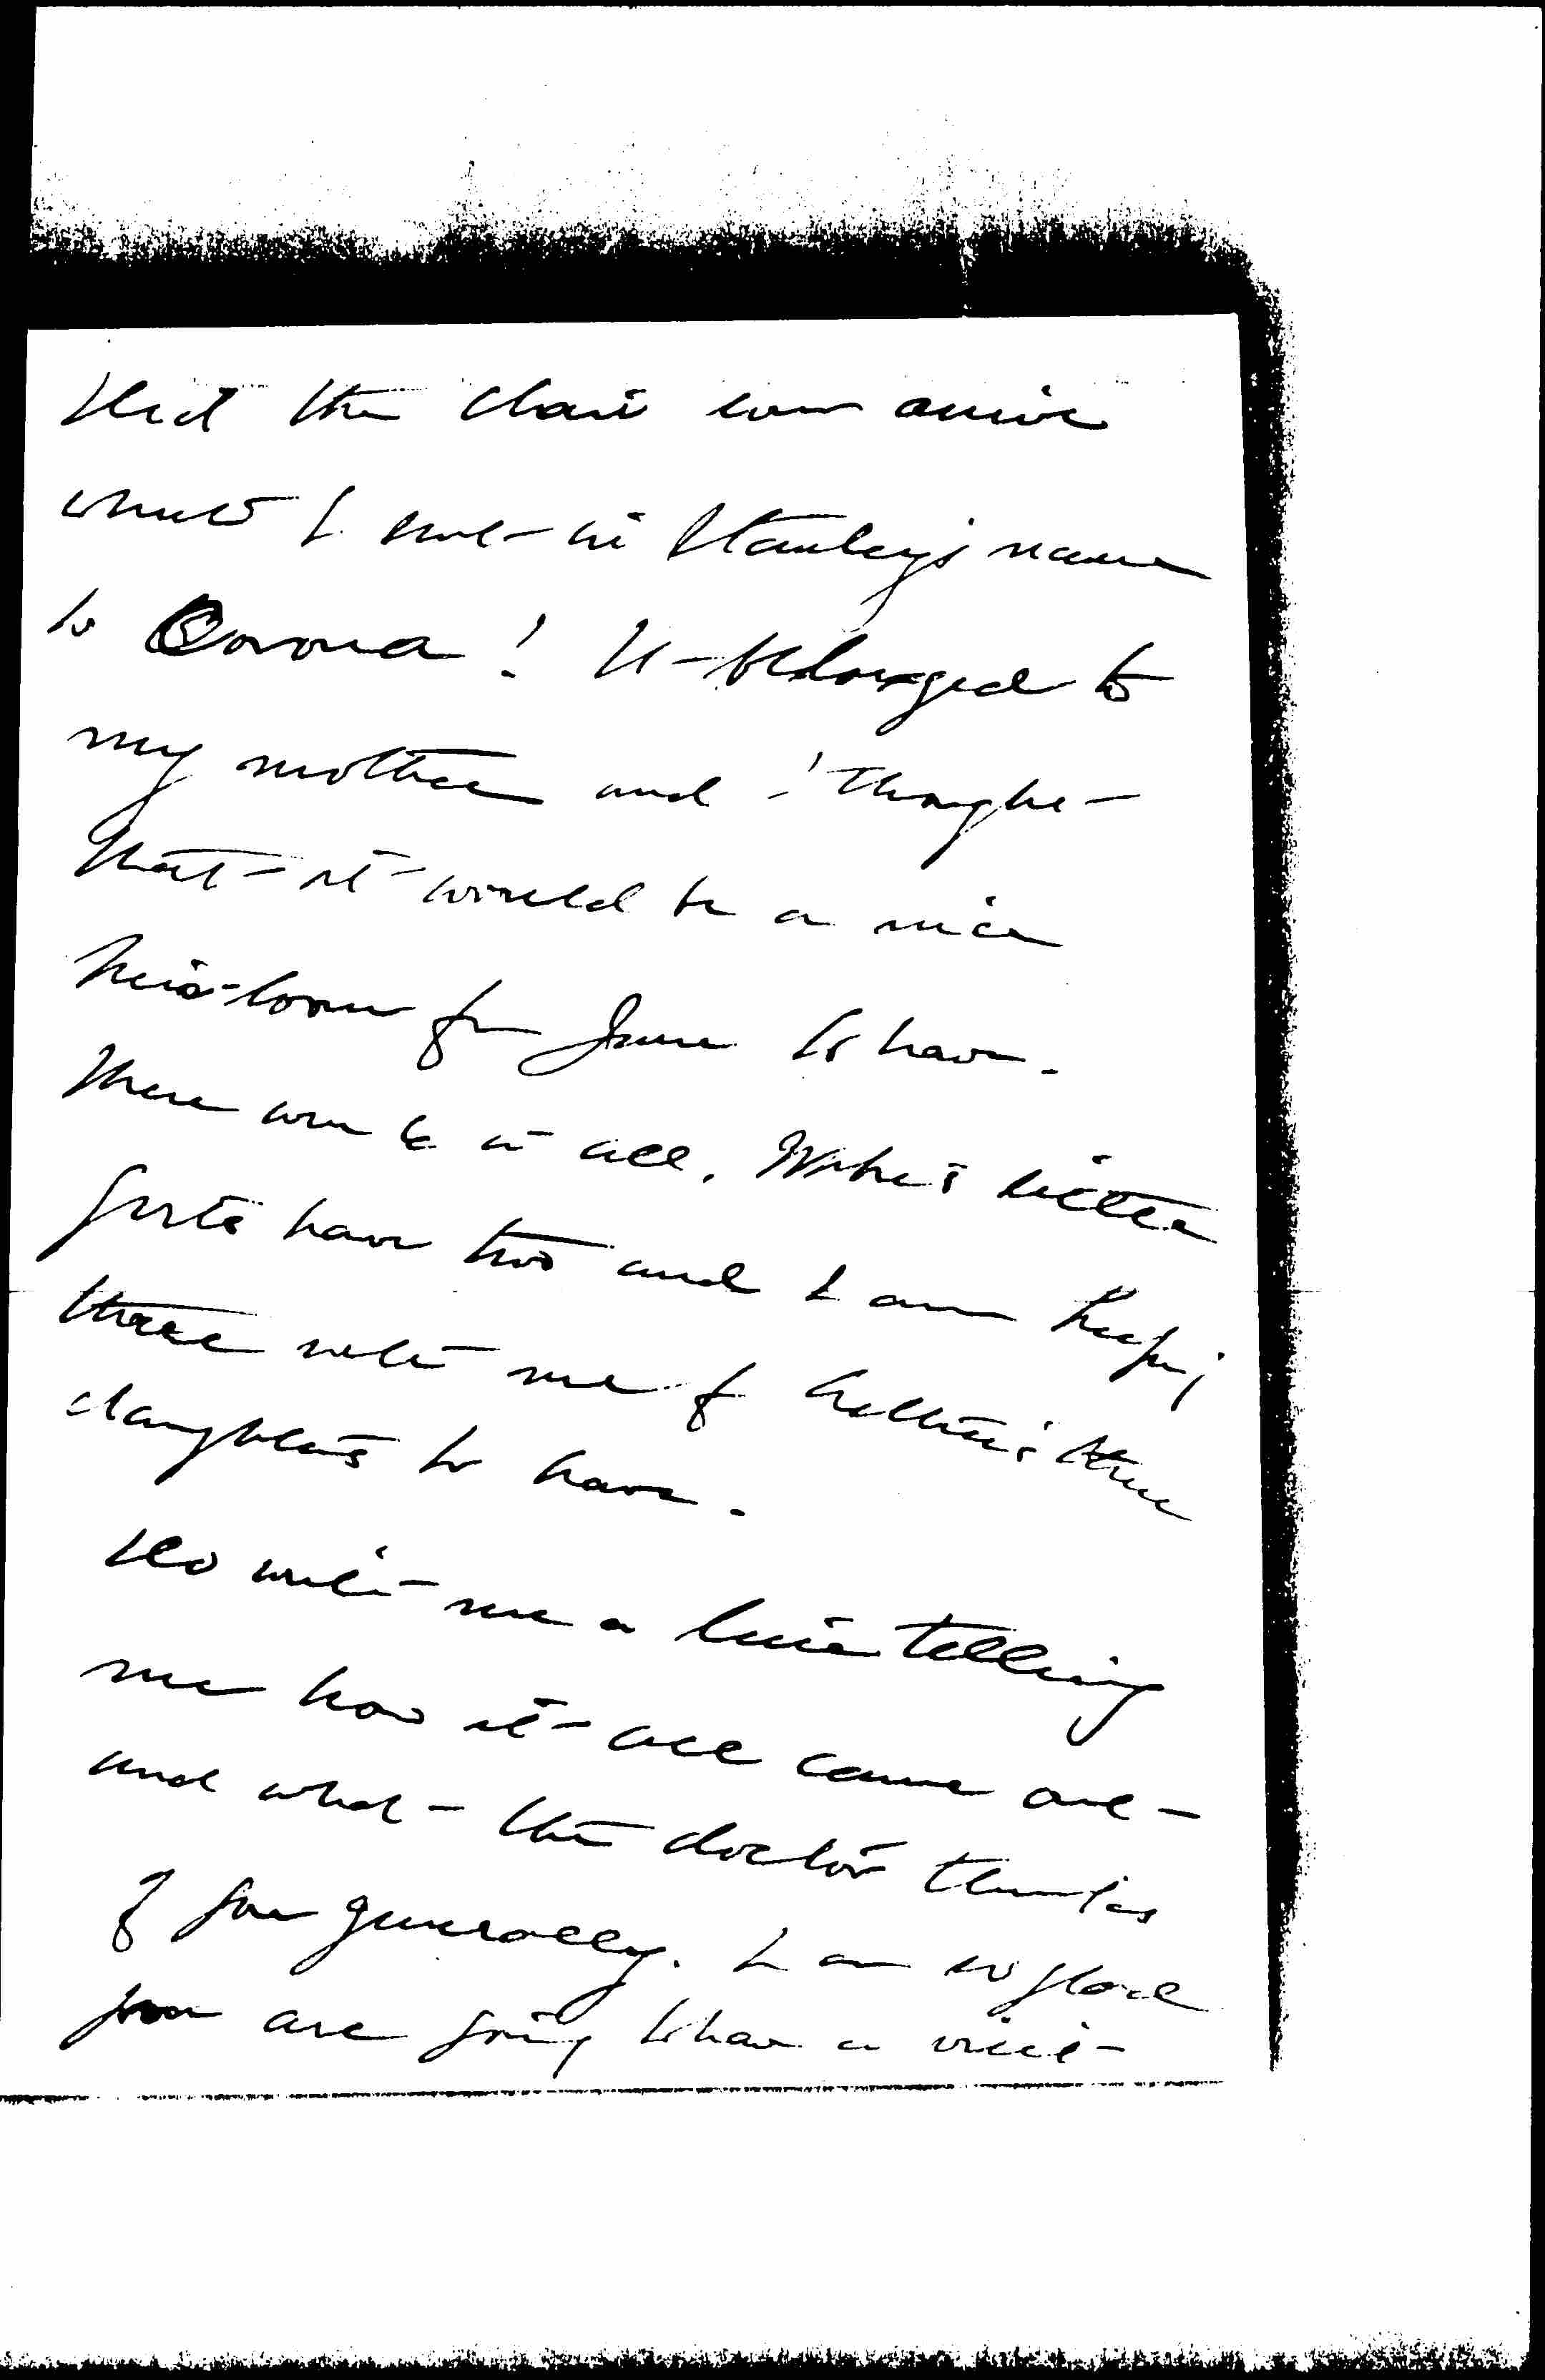 Did the chair ever arrive
which I sent in Stanley's name
to Corona! It belonged to
my mother and I thought
that it would be a nice
heir-loom for June to have.
There were 6 in all. little
girls have two and I am keeping
three with me for three
daughters to have.
Do write me a line telling
me how it all came out
and what the doctor thinks
of you generally. I am so glad
you are going to have a visit